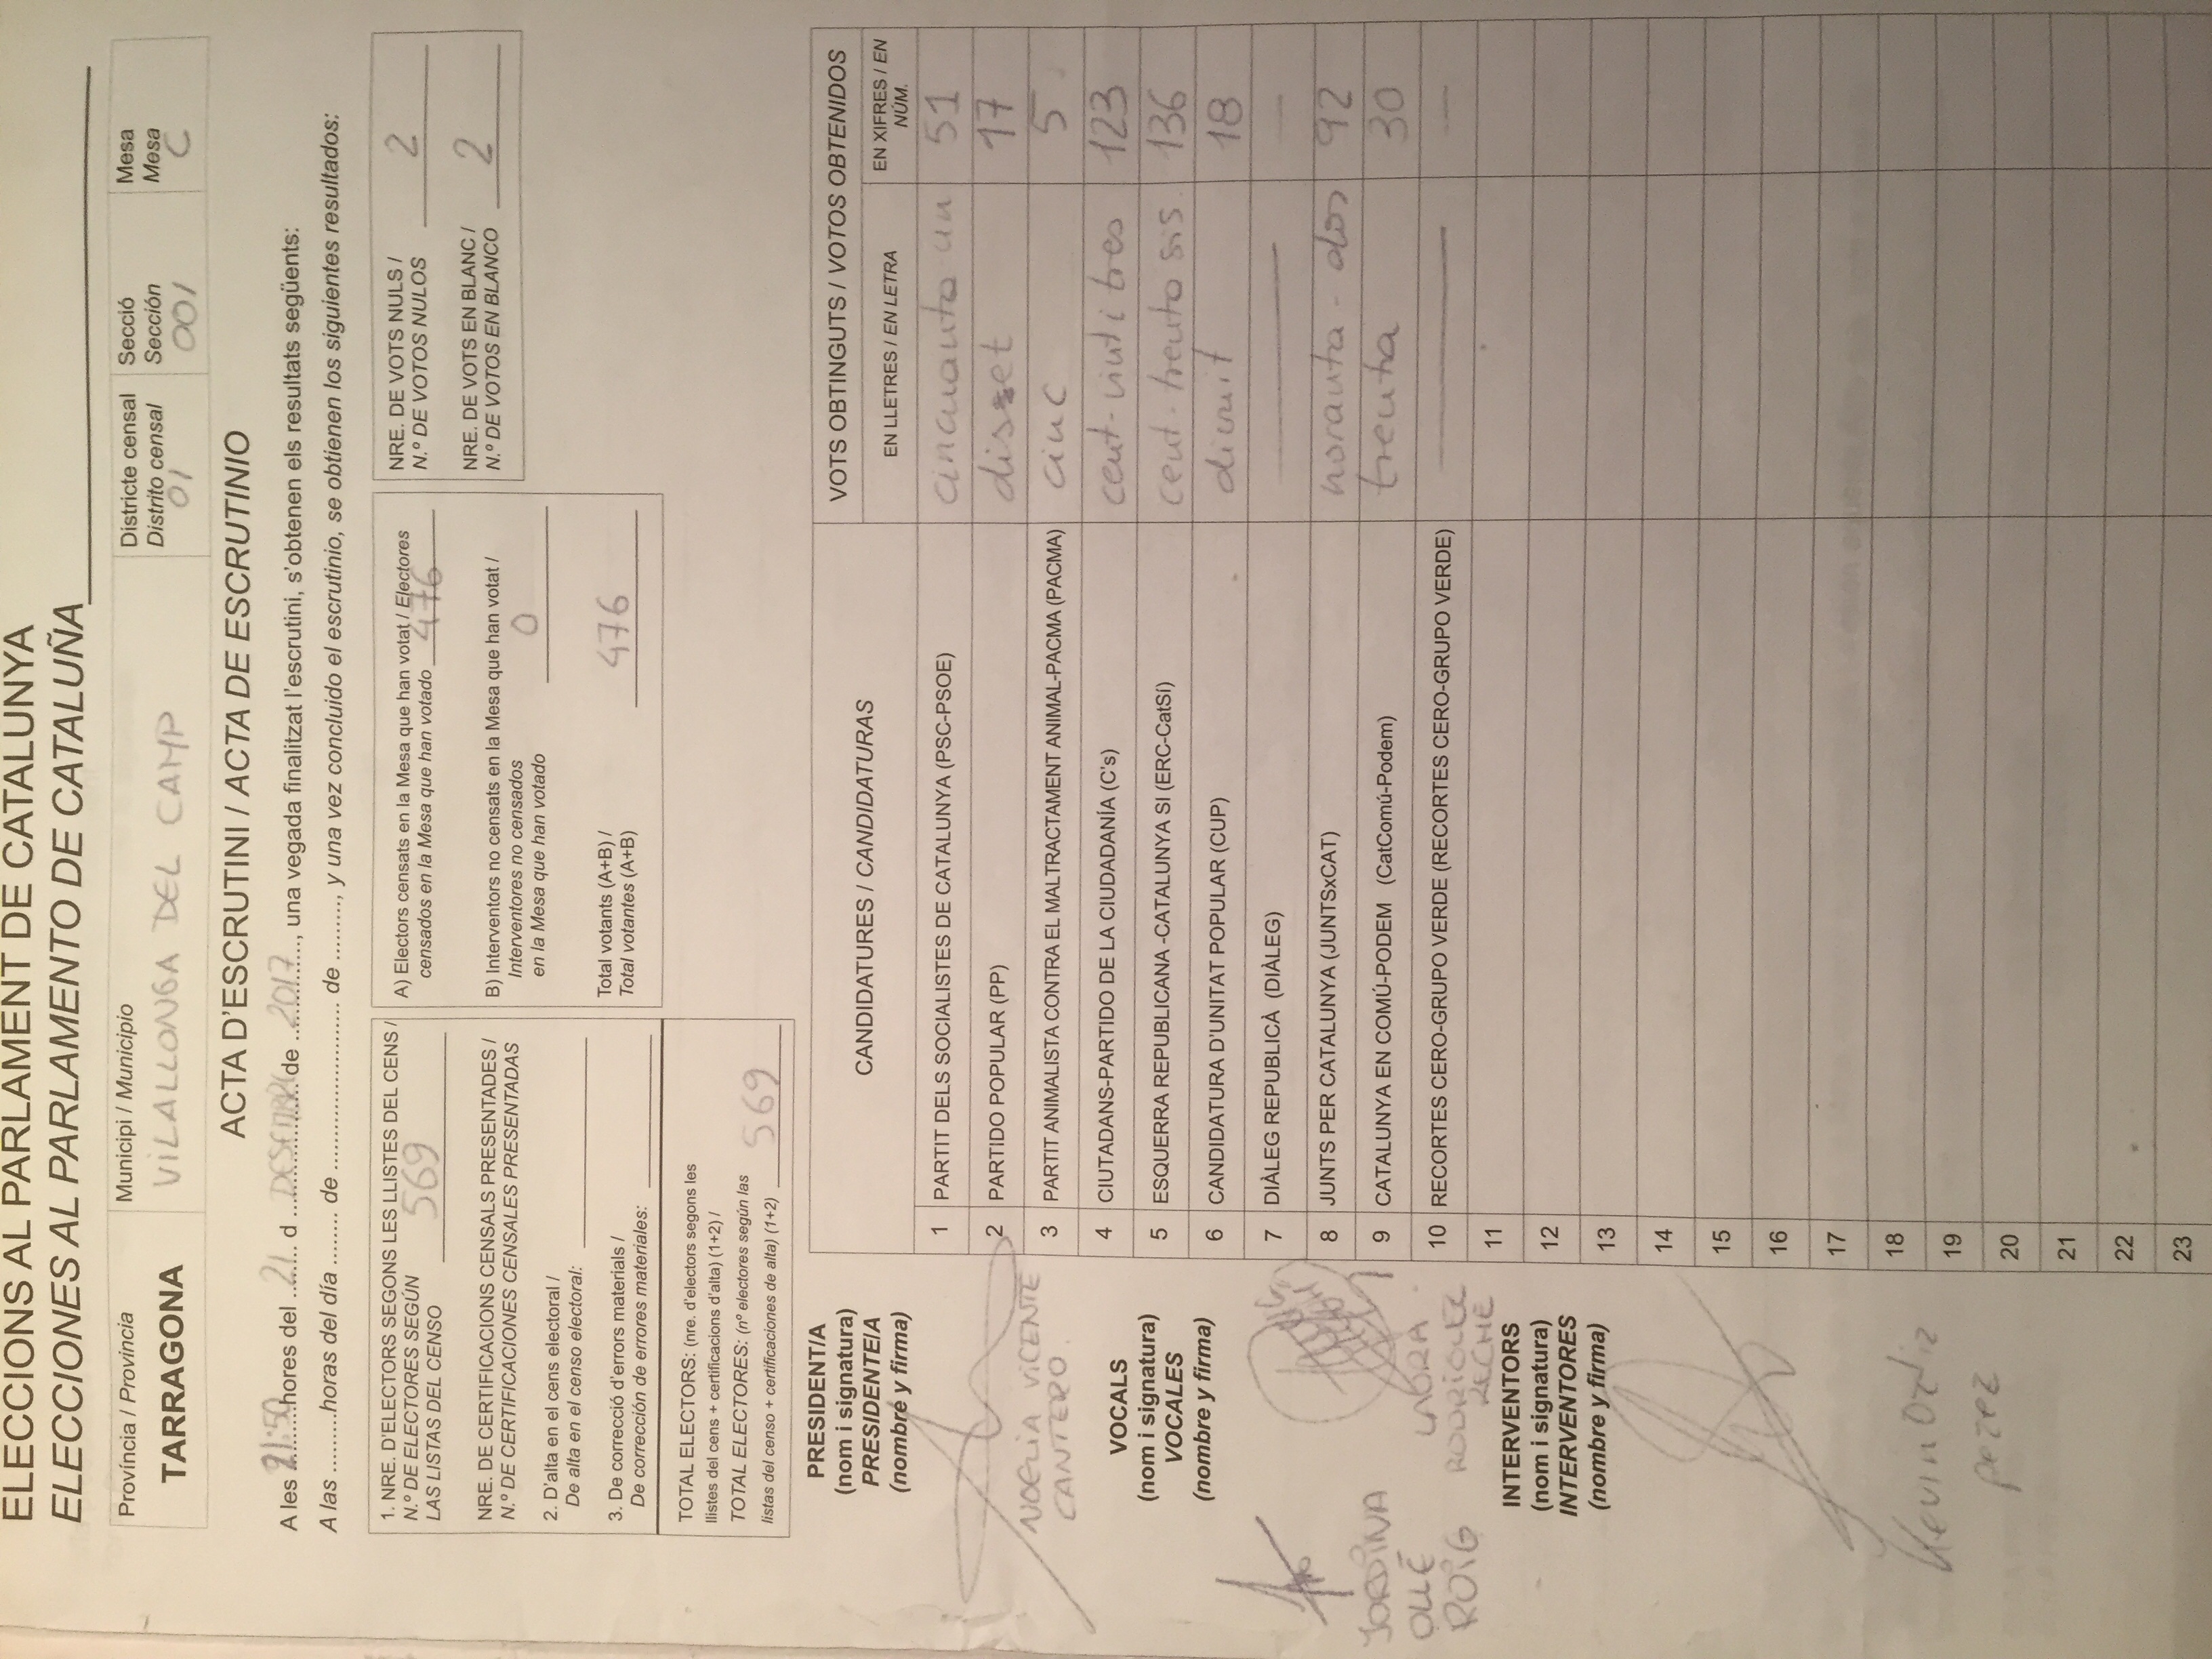 ELECCIONS AL PARLAMENT DE CATALUNYA
ELECCIONES AL PARLAMENTO DE CATALUÑA
Província / Provincia
TARRAGONA
Municipi / Municipio
VILALLONGA DEL CAMP
Districte censal
Distrito censal
01
Secció
Sección
001
Mesa
Mesa
C
ACTA D'ESCRUTINI / ACTA DE ESCRUTINIO
A les 21:50 hores del 21 d DESEMBRE de 2017, una vegada finalitzat l'escrutini, s'obtenen els resultats següents:
A las .........horas del día ........ de ........................ de ........., y una vez concluido el escrutinio, se obtienen los siguientes resultados:
1. NRE. D'ELECTORS SEGONS LES LLISTES DEL CENS /
N.º DE ELECTORES SEGÚN
LAS LISTAS DEL CENSO 569
NRE. DE CERTIFICACIONS CENSALS PRESENTADES /
N.º DE CERTIFICACIONES CENSALES PRESENTADAS
2. D'alta en el cens electoral /
De alta en el censo electoral:
3. De correcció d'errors materials /
De corrección de errores materiales:
TOTAL ELECTORS: (nre. d'electors segons les
llistes del cens + certificacions d'alta) (1+2) /
TOTAL ELECTORES: (nº electores según las
listas del censo + certificaciones de alta) (1+2) 569
A) Electors censats en la Mesa que han votat / Electores
censados en la Mesa que han votado 476
B) Interventors no censats en la Mesa que han votat /
Interventores no censados
en la Mesa que han votado 0
Total votants (A+B) /
Total votantes (A+B) 476
NRE. DE VOTS NULS /
N.º DE VOTOS NULOS 2
NRE. DE VOTS EN BLANC /
N.º DE VOTOS EN BLANCO 2
PRESIDENT/A
(nom i signatura)
PRESIDENTE/A
(nombre y firma)
NOELIA VICENTE
CANTERO.
VOCALS
(nom i signatura)
VOCALES
(nombre y firma)
JORDINA
OLLÉ
ROIG
LAURA
RODRÍGUEZ
RECHE
INTERVENTORS
(nom i signatura)
INTERVENTORES
(nombre y firma)
Kevin Ortiz
perez
CANDIDATURES / CANDIDATURAS
VOTS OBTINGUTS / VOTOS OBTENIDOS
EN LLETRES / EN LETRA
EN XIFRES / EN
NÚM.
1 PARTIT DELS SOCIALISTES DE CATALUNYA (PSC-PSOE) cincuanta un 51
2 PARTIDO POPULAR (PP) disset 17
3 PARTIT ANIMALISTA CONTRA EL MALTRACTAMENT ANIMAL-PACMA (PACMA) cinc 5
4 CIUTADANS-PARTIDO DE LA CIUDADANÍA (C's) cent-vint i tres 123
5 ESQUERRA REPUBLICANA -CATALUNYA SI (ERC-CatSí) cent-trenta sis 136
6 CANDIDATURA D'UNITAT POPULAR (CUP) divuit 18
7 DIÀLEG REPUBLICÀ (DIÀLEG) — —
8 JUNTS PER CATALUNYA (JUNTSxCAT) noranta-dos 92
9 CATALUNYA EN COMÚ-PODEM (CatComú-Podem) trenta 30
10 RECORTES CERO-GRUPO VERDE (RECORTES CERO-GRUPO VERDE) — —
11
12
13
14
15
16
17
18
19
20
21
22
23